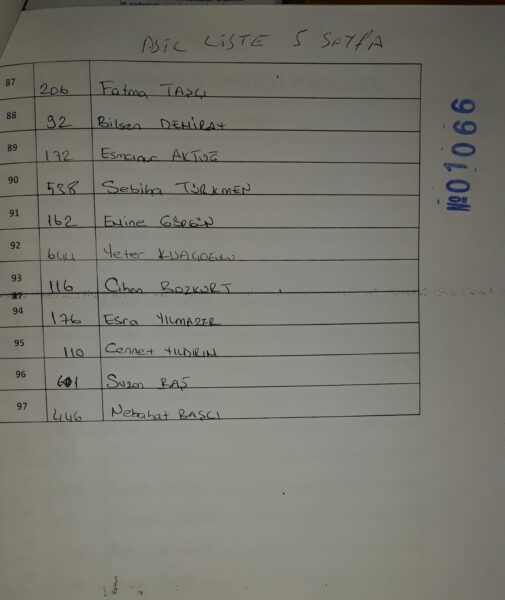 ASİL LİSTE 5. SAYFA
87 206 Fatma TAŞÇI
88 92 Bilsen DEMİRAY
89 172 Esmanur AKTUĞ
90 538 Sebiha TÜRKMEN
91 162 Emine
92 644 Yeter
93 116 Cihan BOZKURT
94 176 Esra YILMAZER
95 110 Cennet YILDIRIM
96 601 Suzan BAŞ
97 446 Nebahat BAŞCI
№01066